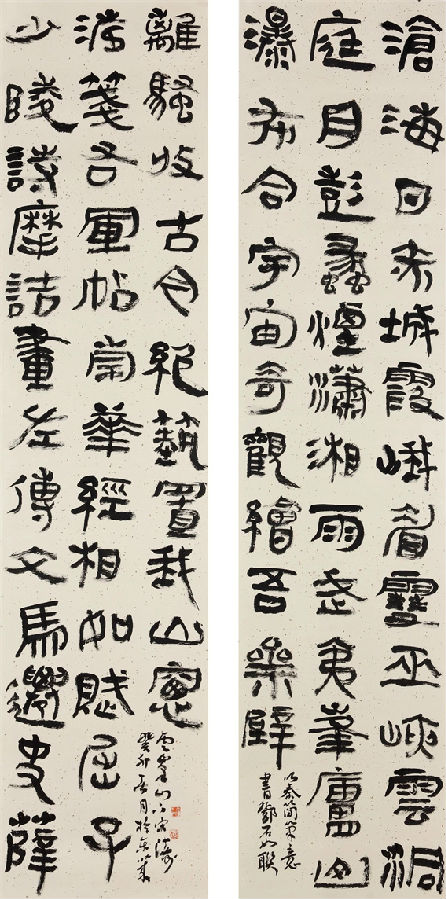 滄海日赤城霞峨眉雪巫峽雲洞
庭月彭蠡煙瀟湘雨武夷峯廬山
瀑布合宇宙奇觀繪吾齋壁
以秦簡筆意
書鄧石如聯
少陵詩摩詰畫左傳文馬遷史薛
濤箋右軍帖南華經相如賦屈子
離騷收古今絕藝置我山窗
癸卯春月於京華